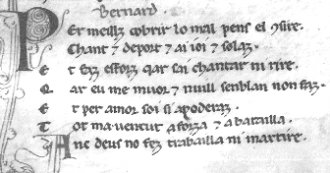 Bernard.
Per meillz cobrir lo mal pens el ꝯsire.
Chant ⁊ deport ⁊ ai ioi ⁊ solaz.
E t faz esforz qar sai chantar ni rire.
Q ar eu me muor ⁊ nuill senblan non faz.
E t per amor soi si apoderaz.
T ot ma vencut a forza ⁊ a batailla.
A nc deus no fez trabailla ni martire.